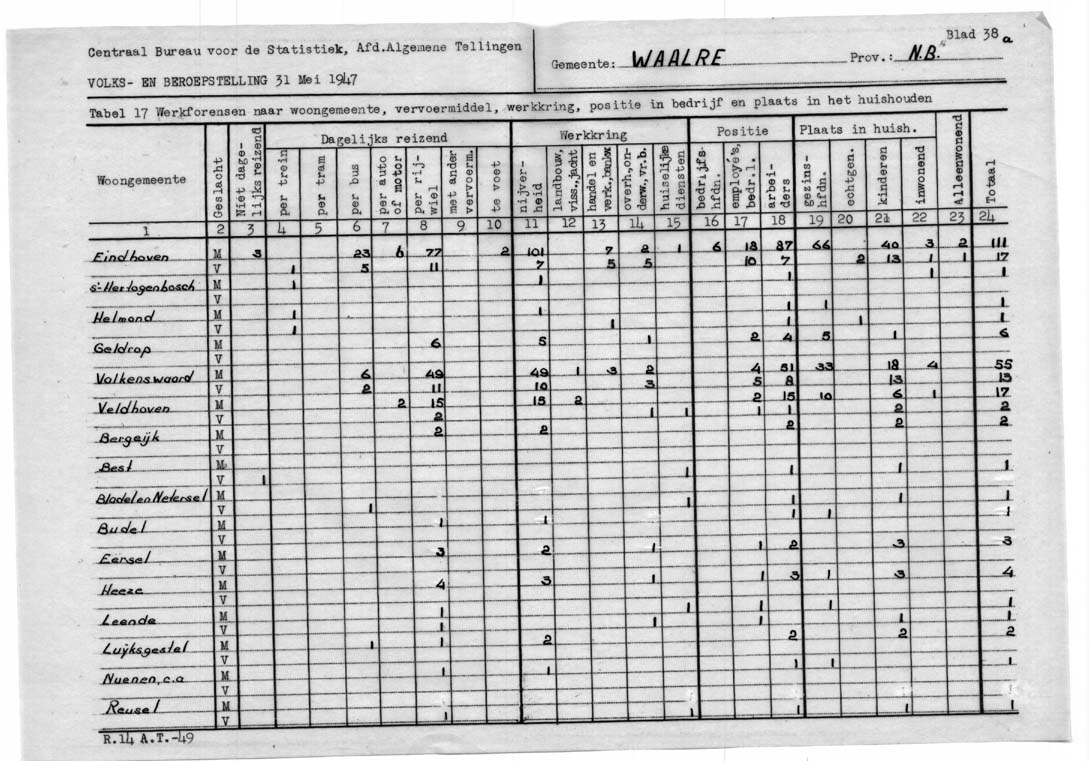 Centraal Bureau voor de Statistiek, Afd.Algemene Tellingen
VOLKS- EN BEROEPSTELLING 31 Mei 1947
Gemeente: WAALRE Prov.: N.B. Blad 38a
Tabel 17 Werkforensen naar woongemeente, vervoermiddel, werkkring, positie in bedrijf en plaats in het huishouden
Dagelijks reizend Werkkring Positie Plaats in huish.
Woongemeente Geslacht Niet dagelijks reizend per trein per tram per bus per auto of motor per rijwiel met ander vervoerm. te voet nijverheid landbouw, viss.,jacht handel en verk.,bankw overh.,onderw.,vr.b. huiselijke diensten bedrijfshfdn. employé's, bedr.l. arbeiders gezinshfdn. echtgen. kinderen inwonend Alleenwonend Totaal
1 2 3 4 5 6 7 8 9 10 11 12 13 14 15 16 17 18 19 20 21 22 23 24
Eindhoven M 3 23 6 77 2 101 7 2 1 6 18 87 66 40 3 2 111
V 1 5 11 7 5 5 10 7 2 13 1 1 17
s'-Hertogenbosch M 1 1 1 1 1
V
Helmond M 1 1 1 1 1
V 1 1 1 1 1
Geldrop M 6 5 1 2 4 5 1 6
V
Valkenswaard M 6 49 49 1 3 2 4 51 33 18 4 55
V 2 11 10 3 5 8 13 13
Veldhoven M 2 15 15 2 2 15 10 6 1 17
V 2 1 1 1 1 2 2
Bergeijk M 2 2 2 2 2
V
Best M
V 1 1 1 1 1
Bladel en Netersel M
V 1 1 1 1 1
Budel M 1 1 1 1 1
V
Eersel M 3 2 1 1 2 3 3
V
Heeze M 4 3 1 1 3 1 3 4
V
Leende M 1 1 1 1 1
V 1 1 1 1 1
Luijksgestel M 1 1 2 2 2 2
V
Nuenen, c.a M 1 1 1 1 1
V
Reusel M
V 1 1 1 1 1
R.14 A.T.-49